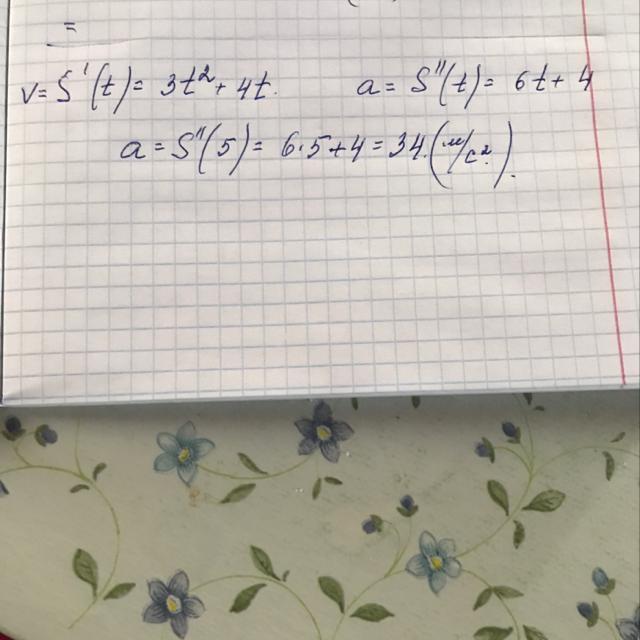 =
v = S'(t) = 3t² + 4t. a = S''(t) = 6t + 4
a = S''(5) = 6·5 + 4 = 34 (м/с²).